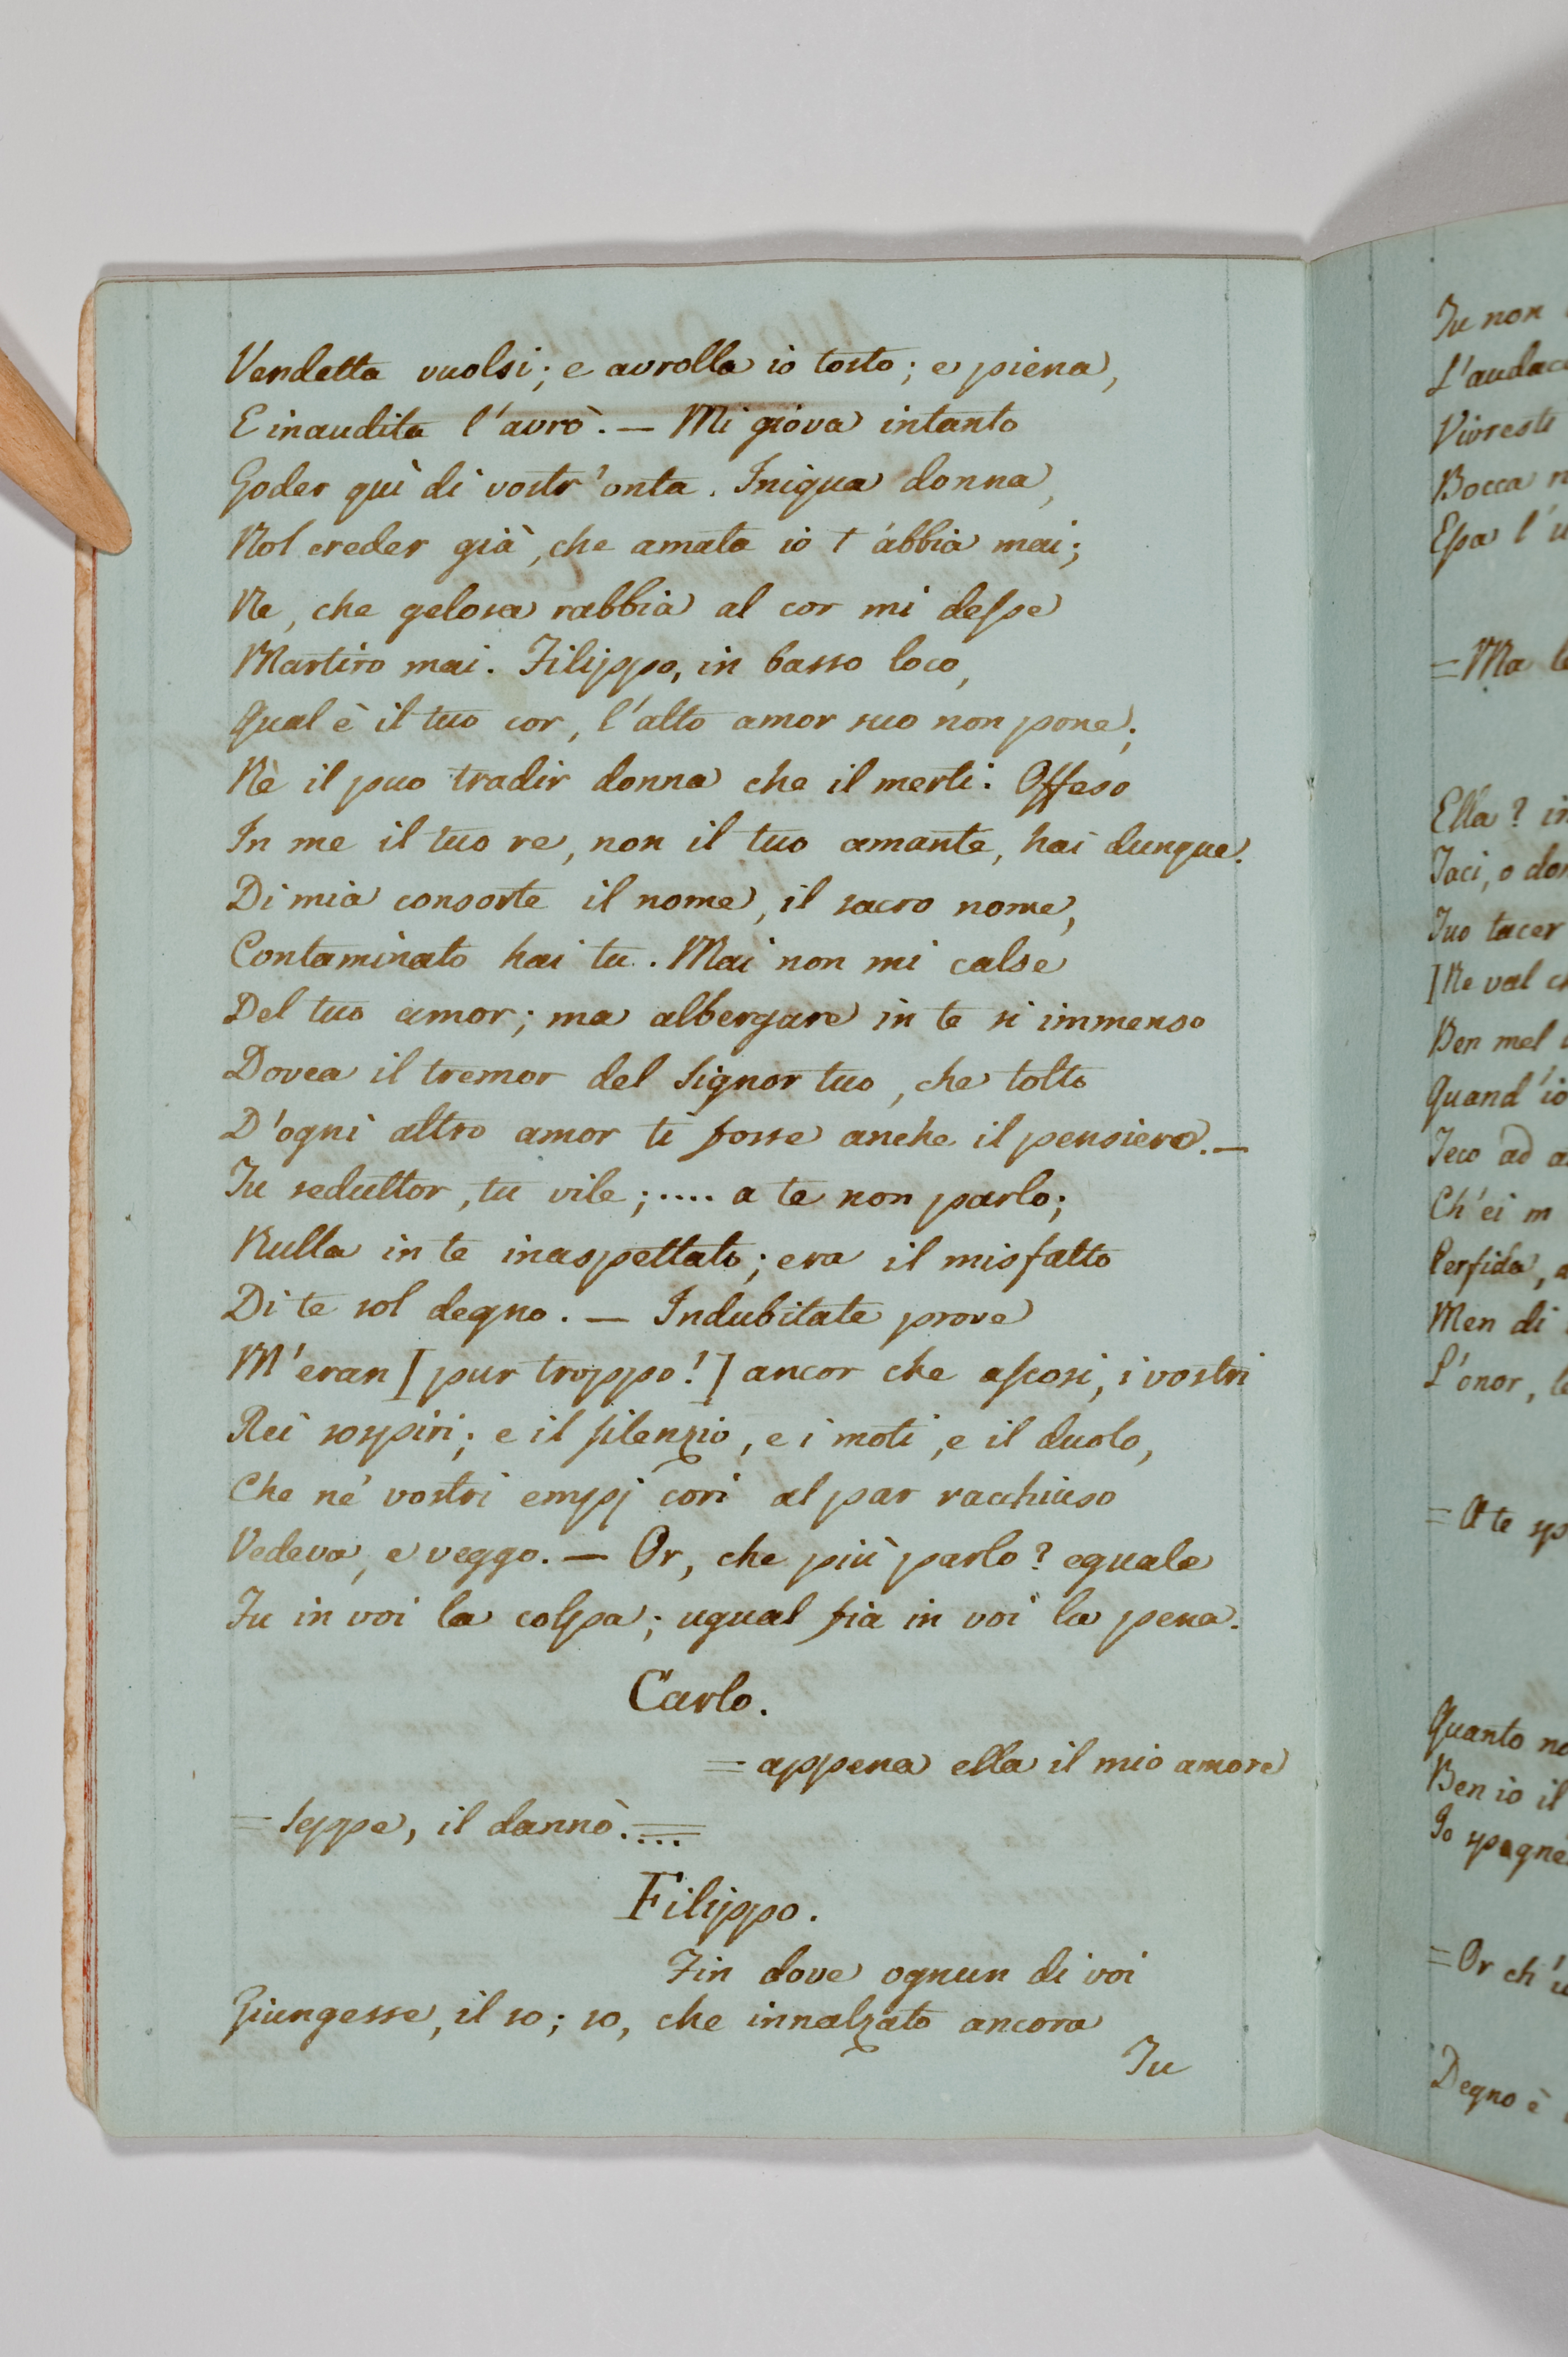 Vendetta vuolsi; e avrolla io tosto; e piena,
E inaudita l'avrò. — Mi giova intanto
Goder quì di vostr'onta. Iniqua donna,
Nol creder già, che amata io t'abbia mai;
Ne, che gelosa rabbia al cor mi desse
Martiro mai. Filippo, in basso loco,
Qual è il tuo cor, l'alto amor suo non pone;
Nè il puo tradir donna che il merti. Offeso
In me il tuo re, non il tuo amante, hai dunque.
Di mia consorte il nome, il sacro nome,
Contaminato hai tu. Mai non mi calse
Del tuo amor; ma albergare in te si immenso
Dovea il tremor del signor tuo, che tolto
D'ogni altro amor ti fosse anche il pensiero. —
Tu seduttor, tu vile; .... a te non parlo;
Nulla in te inaspettato; era il misfatto
Di te sol degno. — Indubitate prove
M'eran [pur troppo!] ancor che ascosi, i vostri
Rei sospiri; e il silenzio, e i moti, e il duolo,
Che ne' vostri empj cori al par racchiuso
Vedeva, e veggo. — Or, che più parlo? eguale
Fu in voi la colpa; ugual fia in voi la pena.
Carlo.
= appena ella il mio amore
= seppe, il dannò.... =
Filippo.
Fin dove ognun di voi
Giungesse, il so; so, che innalzato ancora
Tu
Tu non
L'audac
Vivresti
Bocca n
Essa l'u
= Ma le
Ella? in
Taci, o don
Tuo tacer
[Ne val ch
Ben mel
Quand'io
Teco ad a
Ch'ei m
Perfida, a
Men di
L'onor, le
= A te sp
Quanto no
Ben io il
Io spegne
= Or ch'u
Degno è